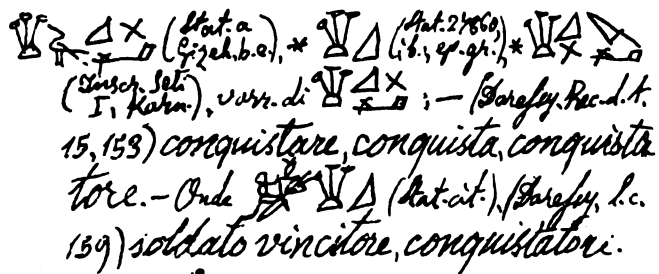 (Stat. a Gizeh, b. e.), * (Stat. 27860, ib., ep. gr.), *
(Inscr. Seti I, Karn.), varr. di ; — (Daressy, Rec. d. t.
15, 159) conquistare, conquista, conquista
tore. — Onde (Stat. cit.). (Daressy, l. c.
159) soldato vincitore, conquistatore.